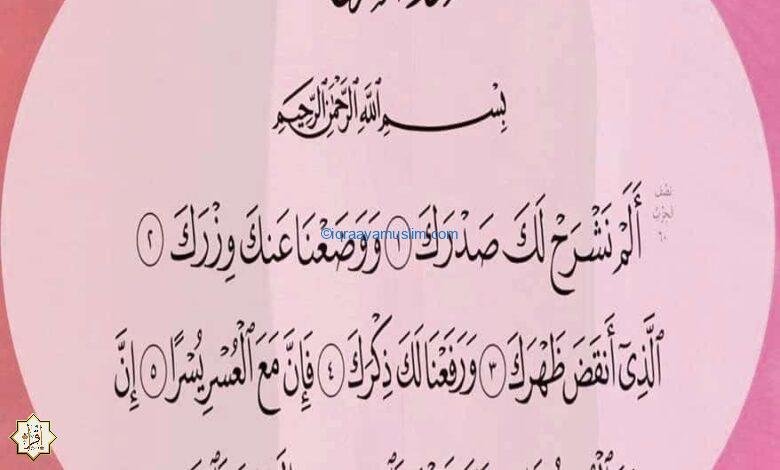 بِسْمِ ٱللَّهِ ٱلرَّحْمَٰنِ ٱلرَّحِيمِ
نصف
الحزب
٦٠
أَلَمْ نَشْرَحْ لَكَ صَدْرَكَ ١ وَوَضَعْنَا عَنكَ وِزْرَكَ ٢
©iqraayamuslim.com
ٱلَّذِىٓ أَنقَضَ ظَهْرَكَ ٣ وَرَفَعْنَا لَكَ ذِكْرَكَ ٤ فَإِنَّ مَعَ ٱلْعُسْرِ يُسْرًا ٥ إِنَّ